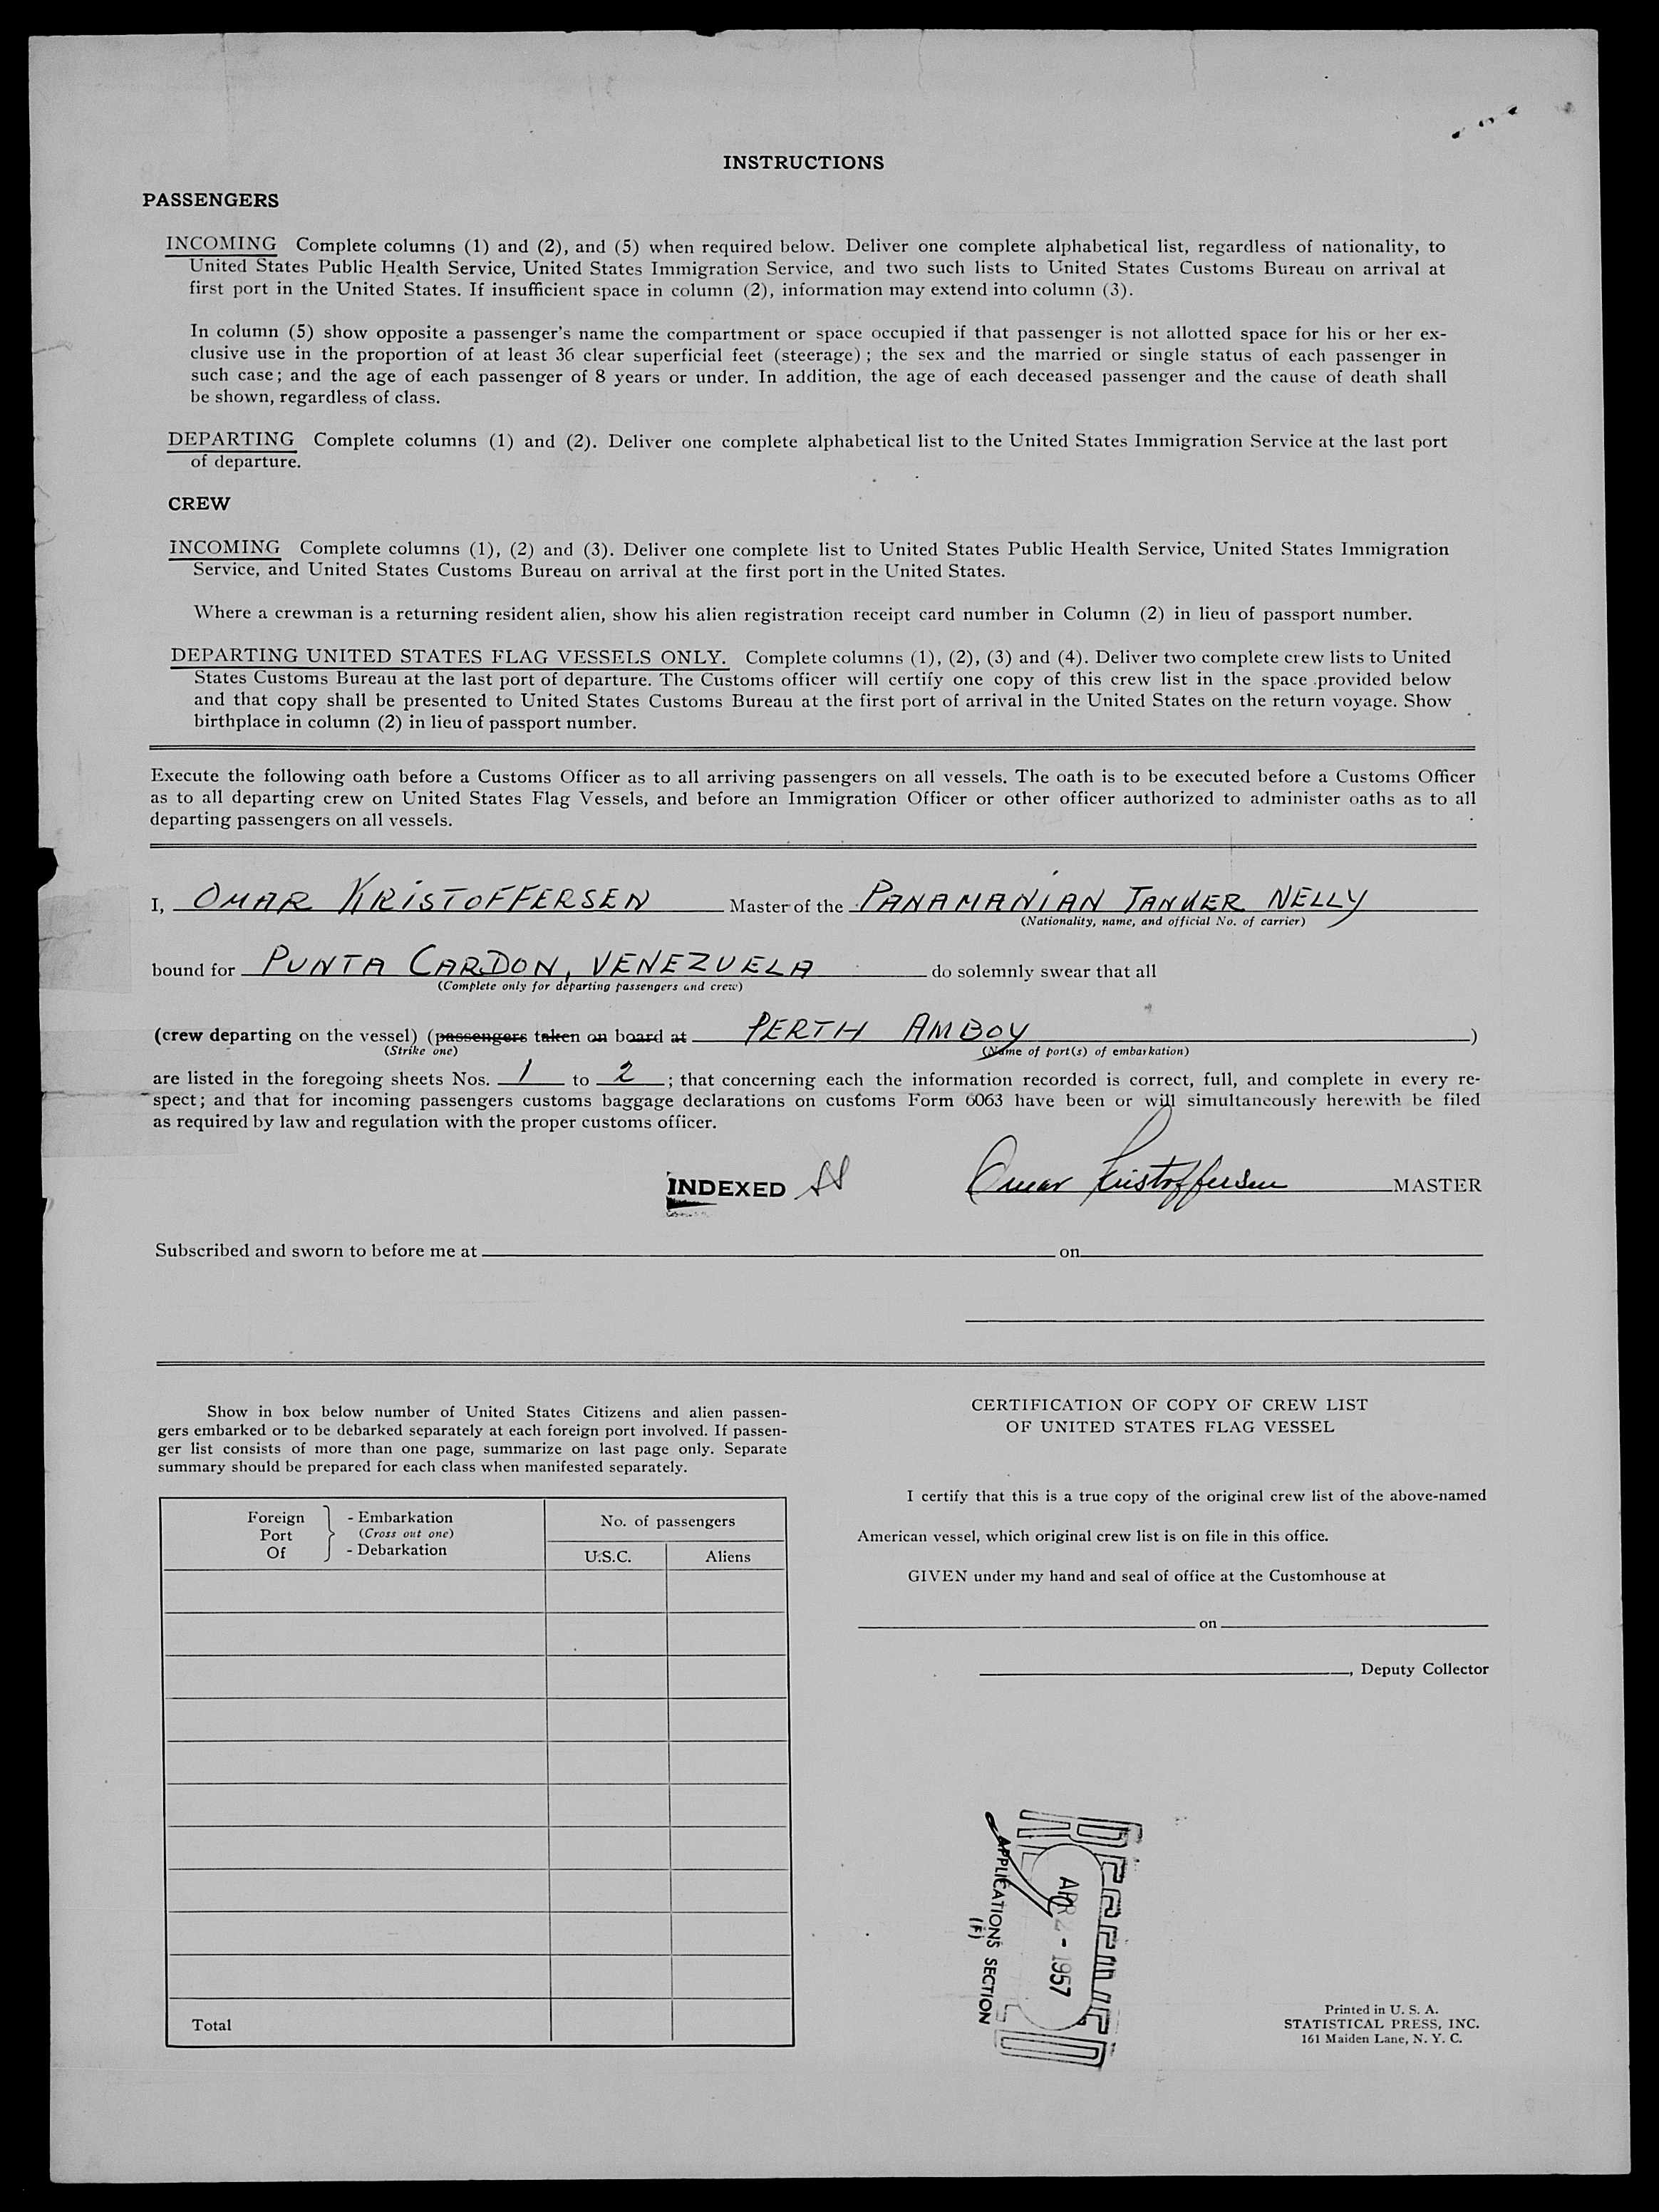 INSTRUCTIONS
PASSENGERS
INCOMING Complete columns (1) and (2), and (5) when required below. Deliver one complete alphabetical list, regardless of nationality, to
United States Public Health Service, United States Immigration Service, and two such lists to United States Customs Bureau on arrival at
first port in the United States. If insufficient space in column (2), information may extend into column (3).
In column (5) show opposite a passenger's name the compartment or space occupied if that passenger is not allotted space for his or her ex-
clusive use in the proportion of at least 36 clear superficial feet (steerage); the sex and the married or single status of each passenger in
such case; and the age of each passenger of 8 years or under. In addition, the age of each deceased passenger and the cause of death shall
be shown, regardless of class.
DEPARTING Complete columns (1) and (2). Deliver one complete alphabetical list to the United States Immigration Service at the last port
of departure.
CREW
INCOMING Complete columns (1), (2) and (3). Deliver one complete list to United States Public Health Service, United States Immigration
Service, and United States Customs Bureau on arrival at the first port in the United States.
Where a crewman is a returning resident alien, show his alien registration receipt card number in Column (2) in lieu of passport number.
DEPARTING UNITED STATES FLAG VESSELS ONLY. Complete columns (1), (2), (3) and (4). Deliver two complete crew lists to United
States Customs Bureau at the last port of departure. The Customs officer will certify one copy of this crew list in the space provided below
and that copy shall be presented to United States Customs Bureau at the first port of arrival in the United States on the return voyage. Show
birthplace in column (2) in lieu of passport number.
Execute the following oath before a Customs Officer as to all arriving passengers on all vessels. The oath is to be executed before a Customs Officer
as to all departing crew on United States Flag Vessels, and before an Immigration Officer or other officer authorized to administer oaths as to all
departing passengers on all vessels.
I, OMAR KRISTOFFERSEN Master of the PANAMANIAN TANKER NELLY
(Nationality, name, and official No. of carrier)
bound for PUNTA CARDON, VENEZUELA do solemnly swear that all
(Complete only for departing passengers and crew)
(crew departing on the vessel) (passengers taken on board at PERTH AMBOY)
(Strike one) (Name of port(s) of embarkation)
are listed in the foregoing sheets Nos. 1 to 2; that concerning each the information recorded is correct, full, and complete in every re-
spect; and that for incoming passengers customs baggage declarations on customs Form 6063 have been or will simultaneously herewith be filed
as required by law and regulation with the proper customs officer.
INDEXED Omar Kristoffersen MASTER
Subscribed and sworn to before me at on
Show in box below number of United States Citizens and alien passen-
gers embarked or to be debarked separately at each foreign port involved. If passen-
ger list consists of more than one page, summarize on last page only. Separate
summary should be prepared for each class when manifested separately.
Foreign Port Of - Embarkation
(Cross out one)
- Debarkation
No. of passengers
U.S.C. Aliens
Total
CERTIFICATION OF COPY OF CREW LIST
OF UNITED STATES FLAG VESSEL
I certify that this is a true copy of the original crew list of the above-named
American vessel, which original crew list is on file in this office.
GIVEN under my hand and seal of office at the Customhouse at
on
, Deputy Collector
RECEIVED
APR 2 - 1957
APPLICATIONS SECTION
(F)
Printed in U. S. A.
STATISTICAL PRESS, INC.
161 Maiden Lane, N. Y. C.